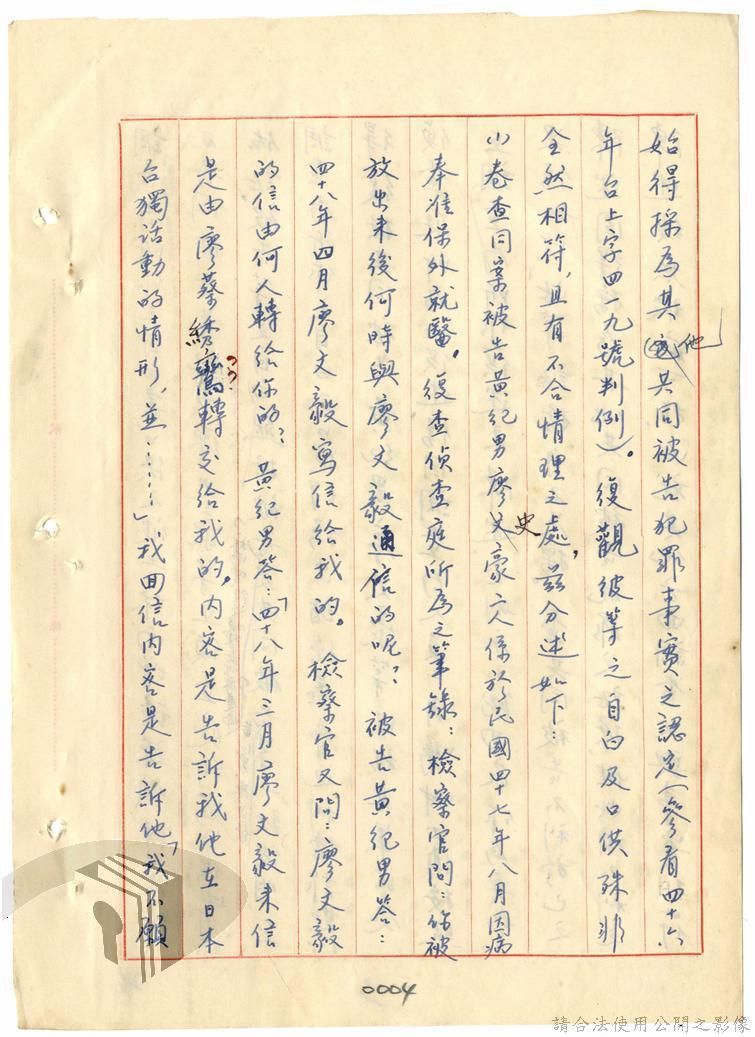 始得採為其他共同被告犯罪事實之認定(參看四十六
年台上字四一九號判例)。復觀彼等之自白及口供殊非
全然相符,且有不合情理之處,茲分述如下:
(1)卷查同案被告黃紀男廖史豪二人係於民國四十七年八月因病
奉准保外就醫。復查偵查庭所為之筆錄:檢察官問:你被
放出來後何時與廖文毅通信的呢?:被告黃紀男答:
四十八年四月廖文毅寫信給我的。檢察官又問:廖文毅
的信由何人轉給你的?:黃紀男答:「四十八年三月廖文毅來信
是由廖蔡綉鸞轉交給我的,內容是告訴我他在日本
台獨活動的情形,並……」我回信內容是告訴他「我不願
0004
請合法使用公開之影像